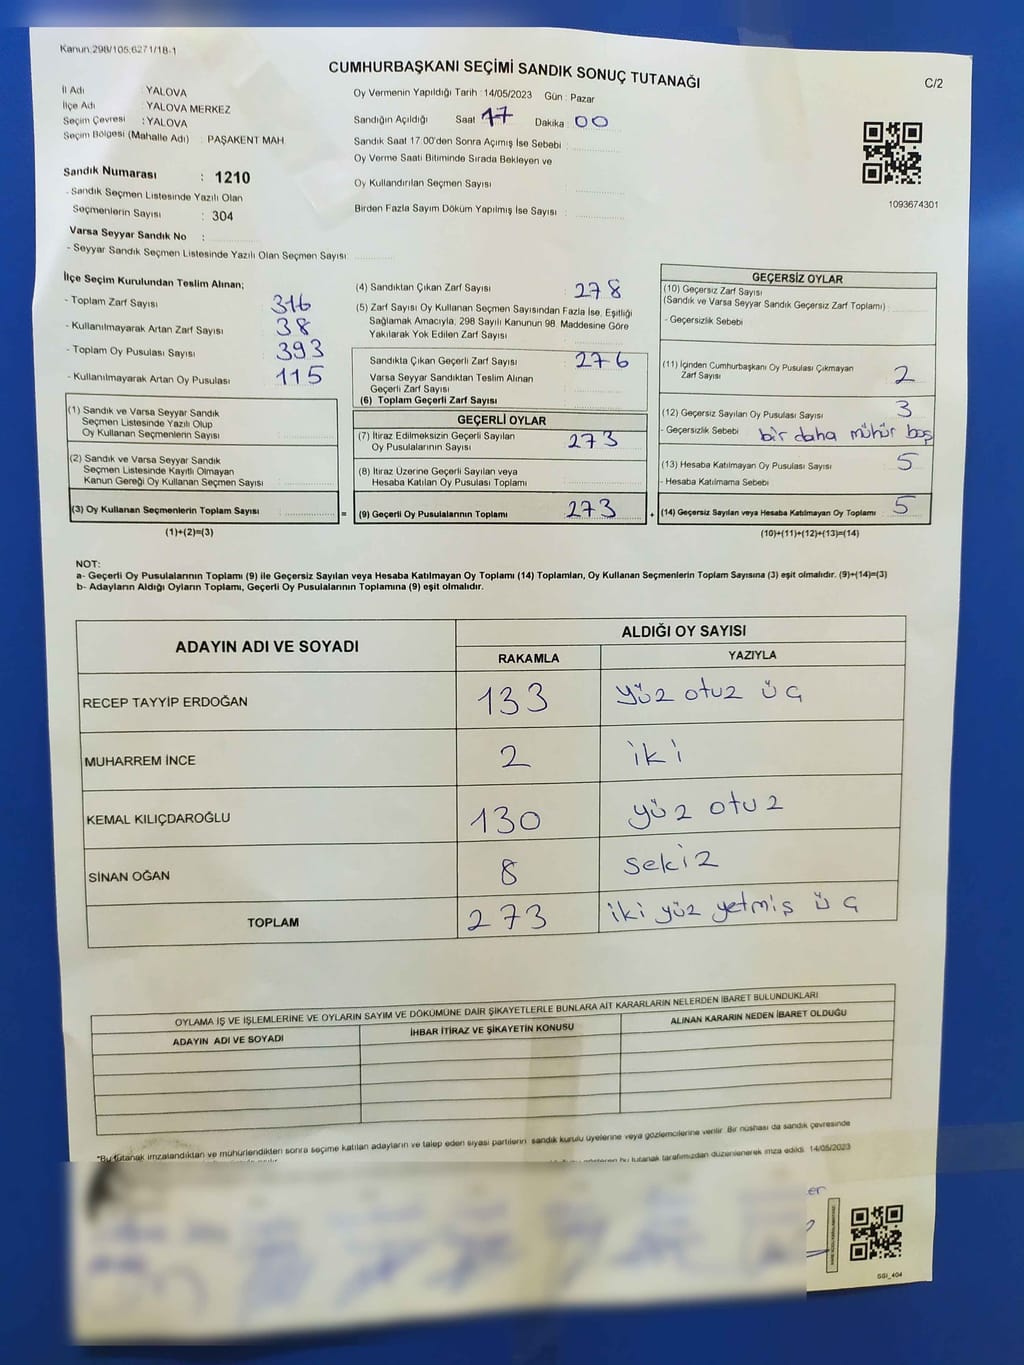 Kanun:298/105,6271/18-1
CUMHURBAŞKANI SEÇİMİ SANDIK SONUÇ TUTANAĞI
C/2
İl Adı : YALOVA
İlçe Adı : YALOVA MERKEZ
Seçim Çevresi : YALOVA
Seçim Bölgesi (Mahalle Adı) : PAŞAKENT MAH
Sandık Numarası : 1210
- Sandık Seçmen Listesinde Yazılı Olan
Seçmenlerin Sayısı : 304
Varsa Seyyar Sandık No :
- Seyyar Sandık Seçmen Listesinde Yazılı Olan Seçmen Sayısı
Oy Vermenin Yapıldığı Tarih : 14/05/2023 Gün : Pazar
Sandığın Açıldığı Saat 17 Dakika : 00
Sandık Saat 17:00'den Sonra Açımış İse Sebebi :
Oy Verme Saati Bitiminde Sırada Bekleyen ve
Oy Kullandırılan Seçmen Sayısı :
Birden Fazla Sayım Döküm Yapılmış İse Sayısı :
1093674301
İlçe Seçim Kurulundan Teslim Alınan;
- Toplam Zarf Sayısı : 316
- Kullanılmayarak Artan Zarf Sayısı : 38
- Toplam Oy Pusulası Sayısı : 393
- Kullanılmayarak Artan Oy Pusulası : 115
(1) Sandık ve Varsa Seyyar Sandık
Seçmen Listesinde Yazılı Olup
Oy Kullanan Seçmenlerin Sayısı :
(2) Sandık ve Varsa Seyyar Sandık
Seçmen Listesinde Kayıtlı Olmayan
Kanun Gereği Oy Kullanan Seçmen Sayısı :
(3) Oy Kullanan Seçmenlerin Toplam Sayısı :
(1)+(2)=(3)
=
(4) Sandıktan Çıkan Zarf Sayısı : 278
(5) Zarf Sayısı Oy Kullanan Seçmen Sayısından Fazla İse, Eşitliği
Sağlamak Amacıyla, 298 Sayılı Kanunun 98. Maddesine Göre
Yakılarak Yok Edilen Zarf Sayısı :
Sandıkta Çıkan Geçerli Zarf Sayısı : 276
Varsa Seyyar Sandıktan Teslim Alınan
Geçerli Zarf Sayısı :
(6) Toplam Geçerli Zarf Sayısı :
GEÇERLİ OYLAR
(7) İtiraz Edilmeksizin Geçerli Sayılan
Oy Pusulalarının Sayısı : 273
(8) İtiraz Üzerine Geçerli Sayılan veya
Hesaba Katılan Oy Pusulası Toplamı :
(9) Geçerli Oy Pusulalarının Toplamı : 273
+
GEÇERSİZ OYLAR
(10) Geçersiz Zarf Sayısı
(Sandık ve Varsa Seyyar Sandık Geçersiz Zarf Toplamı) :
- Geçersizlik Sebebi
(11) İçinden Cumhurbaşkanı Oy Pusulası Çıkmayan
Zarf Sayısı : 2
(12) Geçersiz Sayılan Oy Pusulası Sayısı : 3
- Geçersizlik Sebebi bir daha mühür boş
(13) Hesaba Katılmayan Oy Pusulası Sayısı : 5
- Hesaba Katılmama Sebebi
(14) Geçersiz Sayılan veya Hesaba Katılmayan Oy Toplamı : 5
(10)+(11)+(12)+(13)=(14)
NOT:
a- Geçerli Oy Pusulalarının Toplamı (9) ile Geçersiz Sayılan veya Hesaba Katılmayan Oy Toplamı (14) Toplamları, Oy Kullanan Seçmenlerin Toplam Sayısına (3) eşit olmalıdır. (9)+(14)=(3)
b- Adayların Aldığı Oyların Toplamı, Geçerli Oy Pusulalarının Toplamına (9) eşit olmalıdır.
ADAYIN ADI VE SOYADI
ALDIĞI OY SAYISI
RAKAMLA YAZIYLA
RECEP TAYYİP ERDOĞAN 133 yüz otuz üç
MUHARREM İNCE 2 iki
KEMAL KILIÇDAROĞLU 130 yüz otuz
SİNAN OĞAN 8 sekiz
TOPLAM 273 iki yüz yetmiş üç
OYLAMA İŞ VE İŞLEMLERİNE VE OYLARIN SAYIM VE DÖKÜMÜNE DAİR ŞİKAYETLERLE BUNLARA AİT KARARLARIN NELERDEN İBARET BULUNDUKLARI
ADAYIN ADI VE SOYADI İHBAR İTİRAZ VE ŞİKAYETİN KONUSU ALINAN KARARIN NEDEN İBARET OLDUĞU
*Bu tutanak imzalandıktan ve mühürlendikten sonra seçime katılan adayların ve talep eden siyasi partilerin sandık kurulu üyelerine veya gözlemcilerine verilir. Bir nüshası da sandık çevresinde
bu tutanak tarafımızdan düzenlenerek imza edildi. 14/05/2023
SGI_404